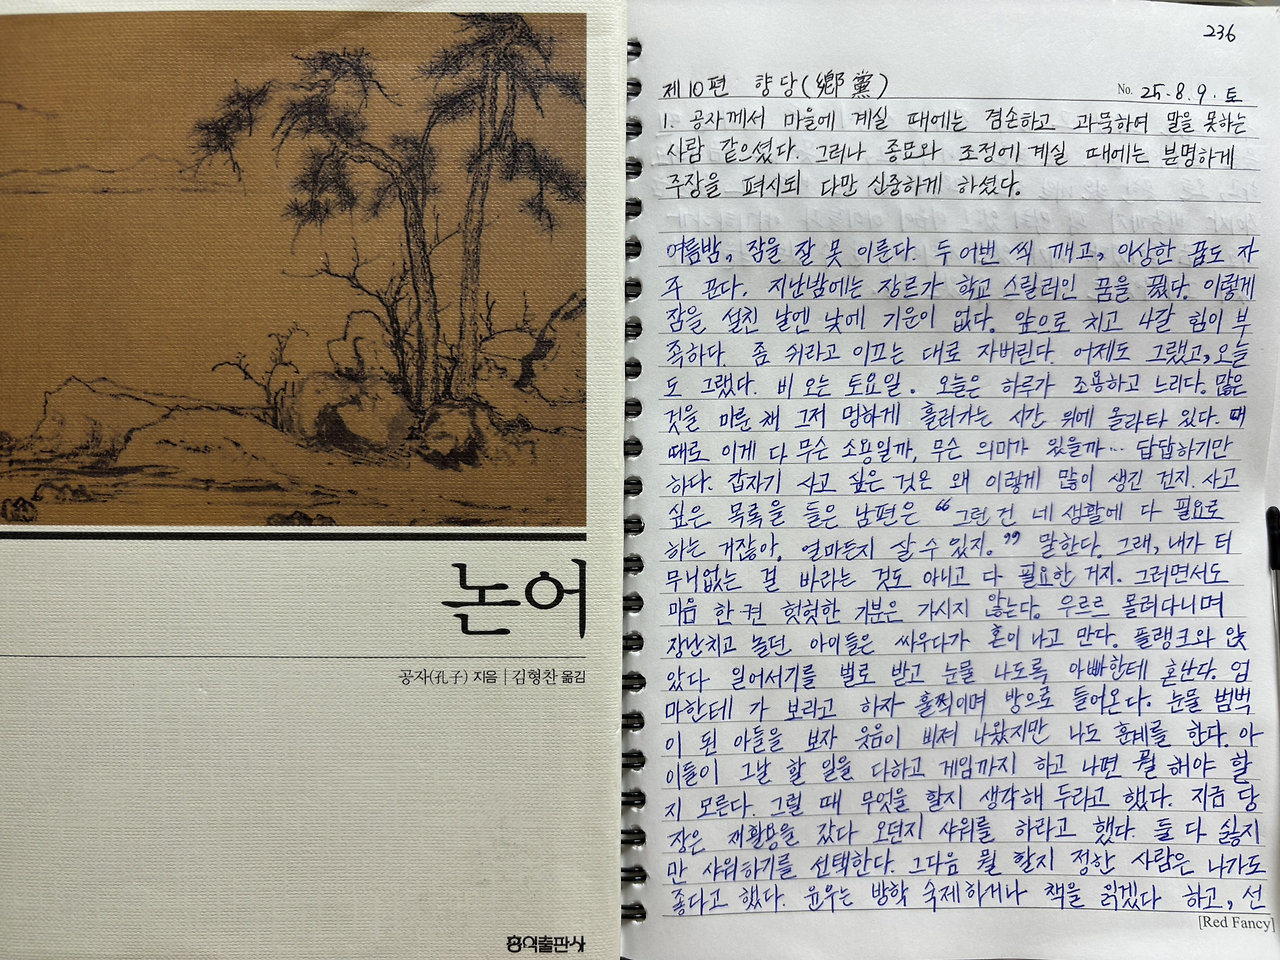 논어
공자(孔子) 지음 | 김형찬 옮김
홍익출판사
236
제10편 향당(鄕黨)
No. 25. 8. 9. 토
1. 공자께서 마을에 계실 때에는 겸손하고 과묵하여 말을 못하는
사람 같으셨다. 그러나 종묘와 조정에 계실 때에는 분명하게
주장을 펴시되 다만 신중하게 하셨다.
여름밤, 잠을 잘 못 이룬다. 두어번 씩 깨고, 이상한 꿈도 자
주 꾼다. 지난밤에는 장르가 학교 스릴러인 꿈을 꿨다. 이렇게
잠을 설친 날엔 낮에 기운이 없다. 앞으로 치고 나갈 힘이 부
족하다. 좀 쉬라고 이끄는 대로 자버린다. 어제도 그랬고, 오늘
도 그랬다. 비 오는 토요일. 오늘은 하루가 조용하고 느리다. 많은
것을 미룬 채 그저 멍하게 흘러가는 시간 위에 올라타 있다. 때
때로 이게 다 무슨 소용일까, 무슨 의미가 있을까... 답답하기만
하다. 갑자기 사고 싶은 것은 왜 이렇게 많이 생긴 건지. 사고
싶은 목록을 들은 남편은 “그런 건 네 생활에 다 필요로
하는 거잖아. 얼마든지 살 수 있지.” 말한다. 그래, 내가 터
무니없는 걸 바라는 것도 아니고 다 필요한 거지. 그러면서도
마음 한 켠 헛헛한 기분은 가시지 않는다. 우르르 몰려다니며
장난치고 놀던 아이들은 싸우다가 혼이 나고 만다. 플랭크와 앉
았다 일어서기를 벌로 받고 눈물 나도록 아빠한테 혼난다. 엄
마한테 가 보라고 하자 훌쩍이며 방으로 들어온다. 눈물 범벅
이 된 아들을 보자 웃음이 비져 나왔지만 나도 훈계를 한다. 아
이들이 그날 할 일을 다하고 게임까지 하고 나면 뭘 해야 할
지 모른다. 그럴 때 무엇을 할지 생각해 두라고 했다. 지금 당
장은 재활용을 갔다 오던지 샤워를 하라고 했다. 둘 다 싫지
만 샤워하기를 선택한다. 그다음 뭘 할지 정한 사람은 나가도
좋다고 했다. 윤우는 방학 숙제하거나 책을 읽겠다 하고, 선
[Red Fancy]